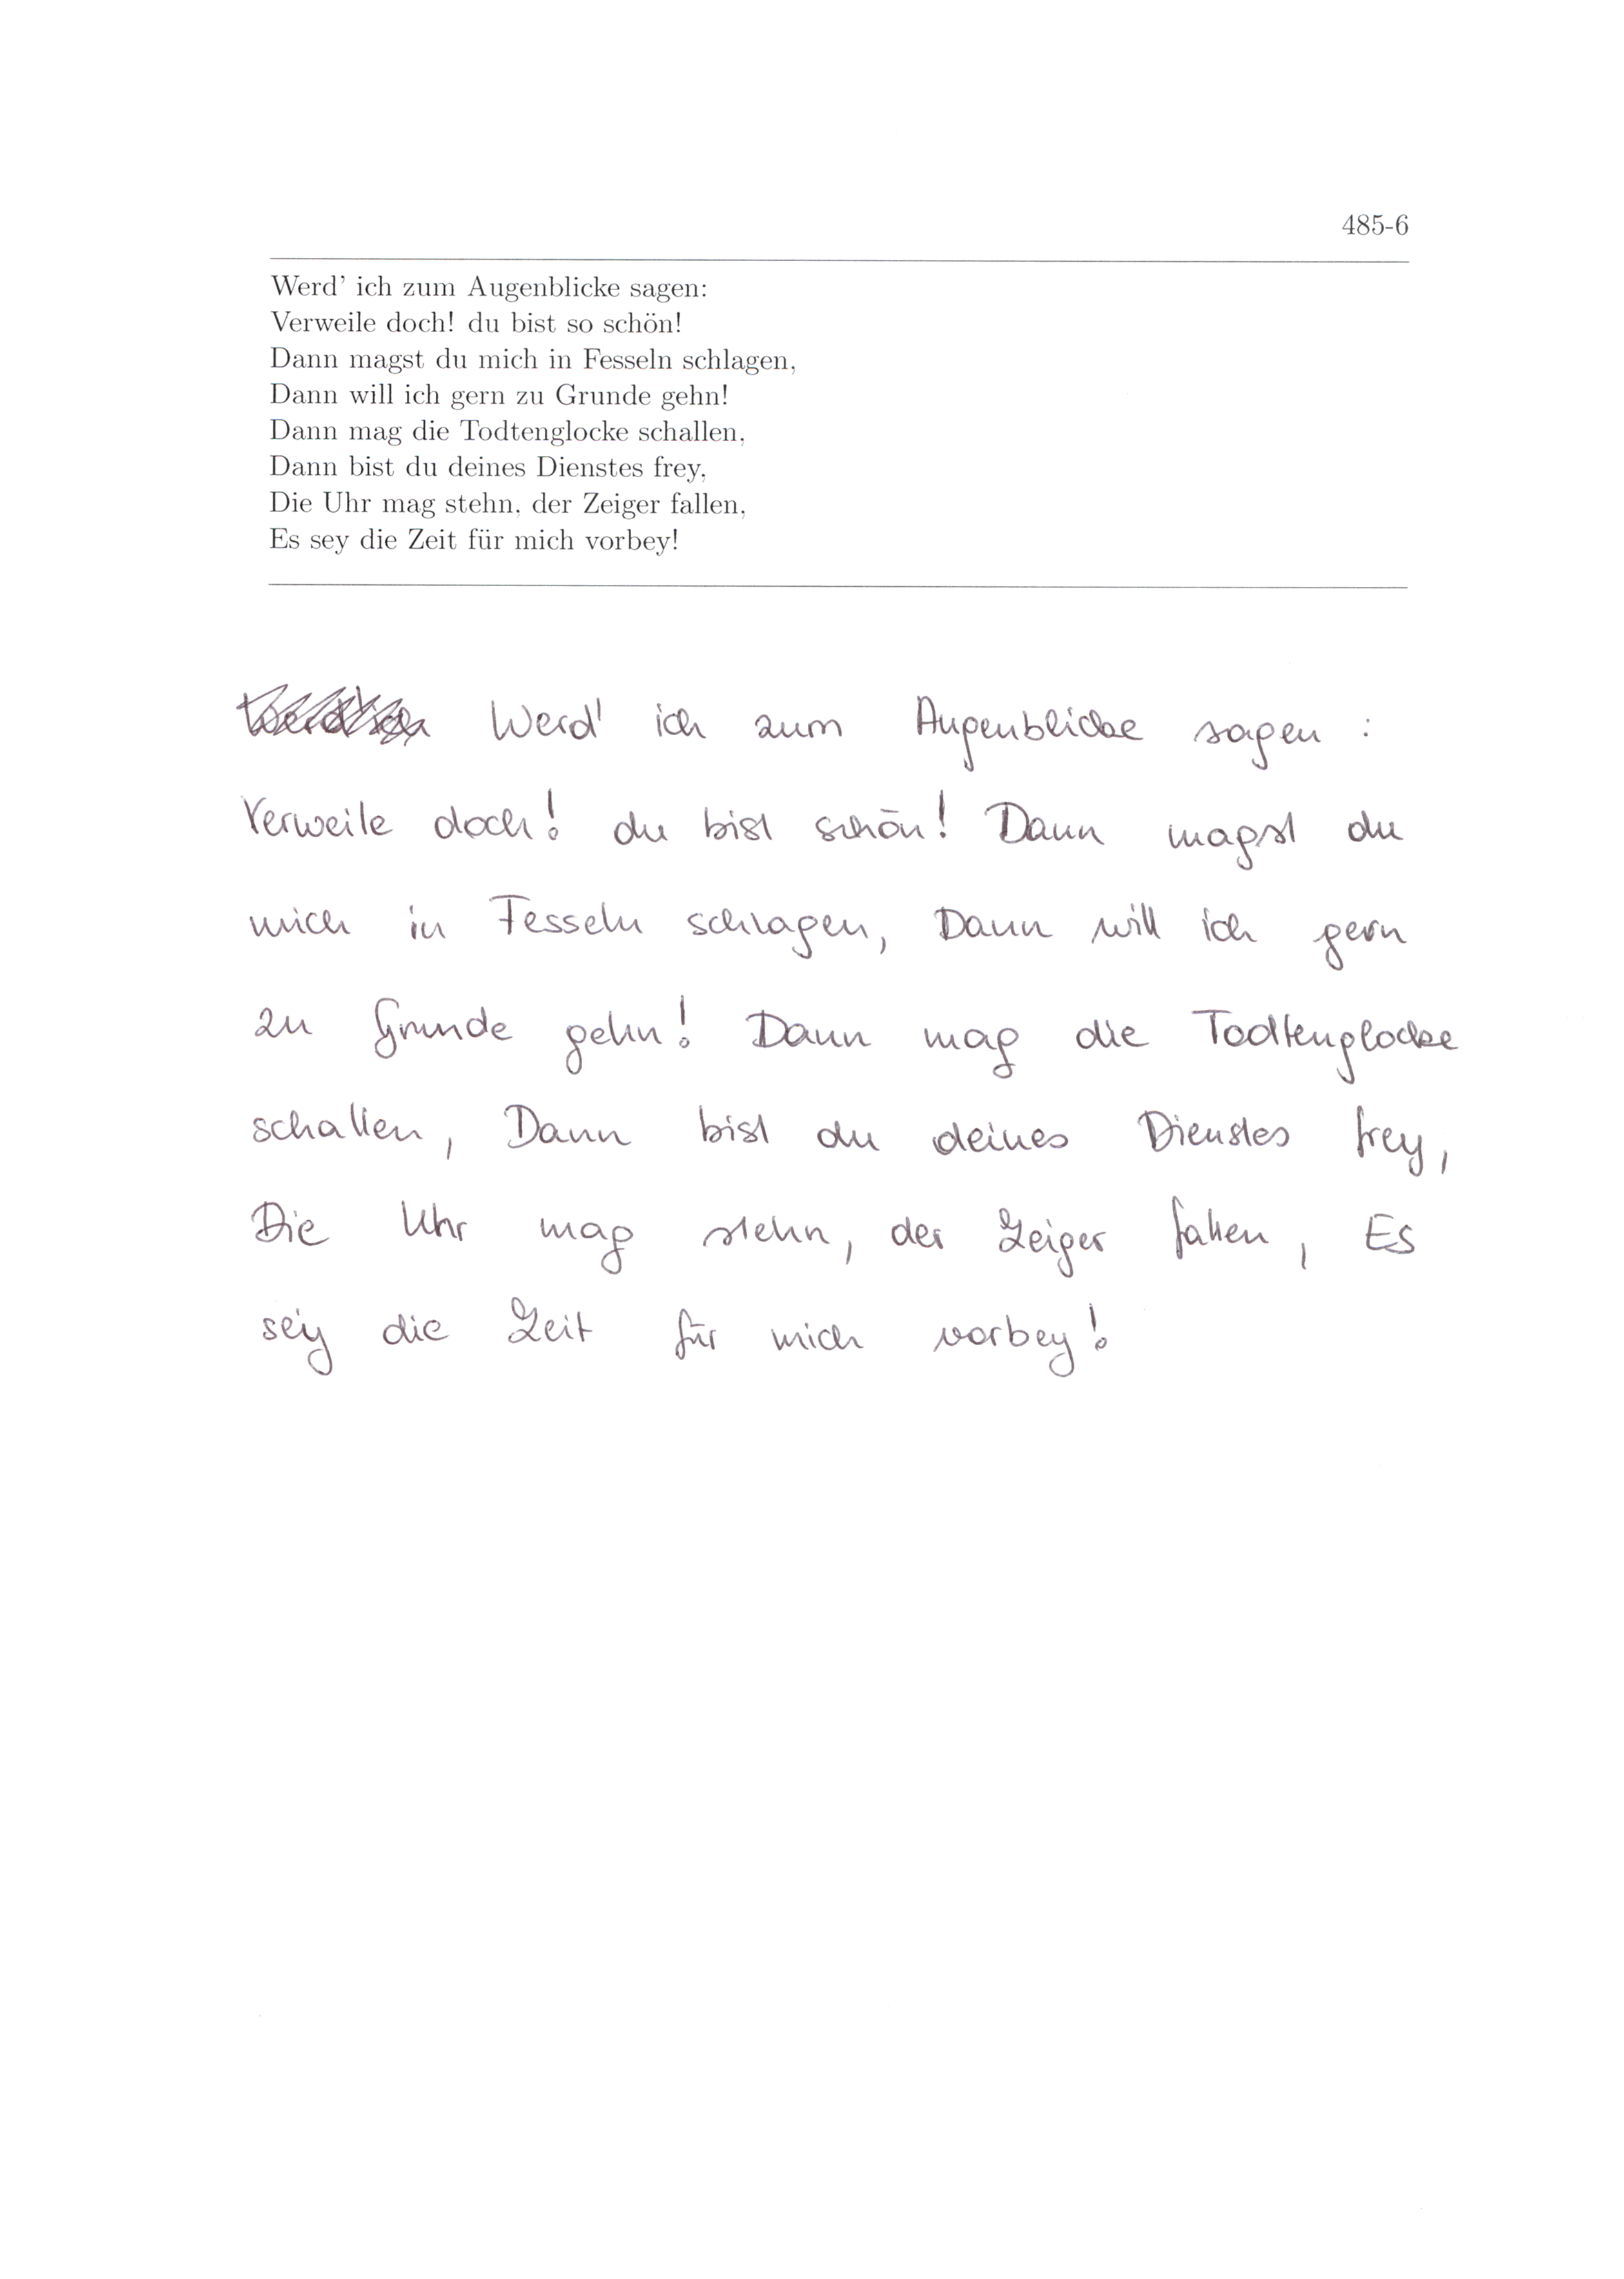 485-6
Werd' ich zum Augenblicke sagen:
Verweile doch! du bist so schön!
Dann magst du mich in Fesseln schlagen,
Dann will ich gern zu Grunde gehn!
Dann mag die Todtenglocke schallen,
Dann bist du deines Dienstes frey,
Die Uhr mag stehn, der Zeiger fallen,
Es sey die Zeit für mich vorbey!
Werd' ich zum Augenblicke sagen :
Verweile doch! du bist schön! Dann magst du
mich in Fesseln schlagen, Dann will ich gern
zu Grunde gehn! Dann mag die Todtenglocke
schallen, Dann bist du deines Dienstes frey,
Die Uhr mag stehn, der Zeiger fallen, Es
sey die Zeit für mich vorbey!